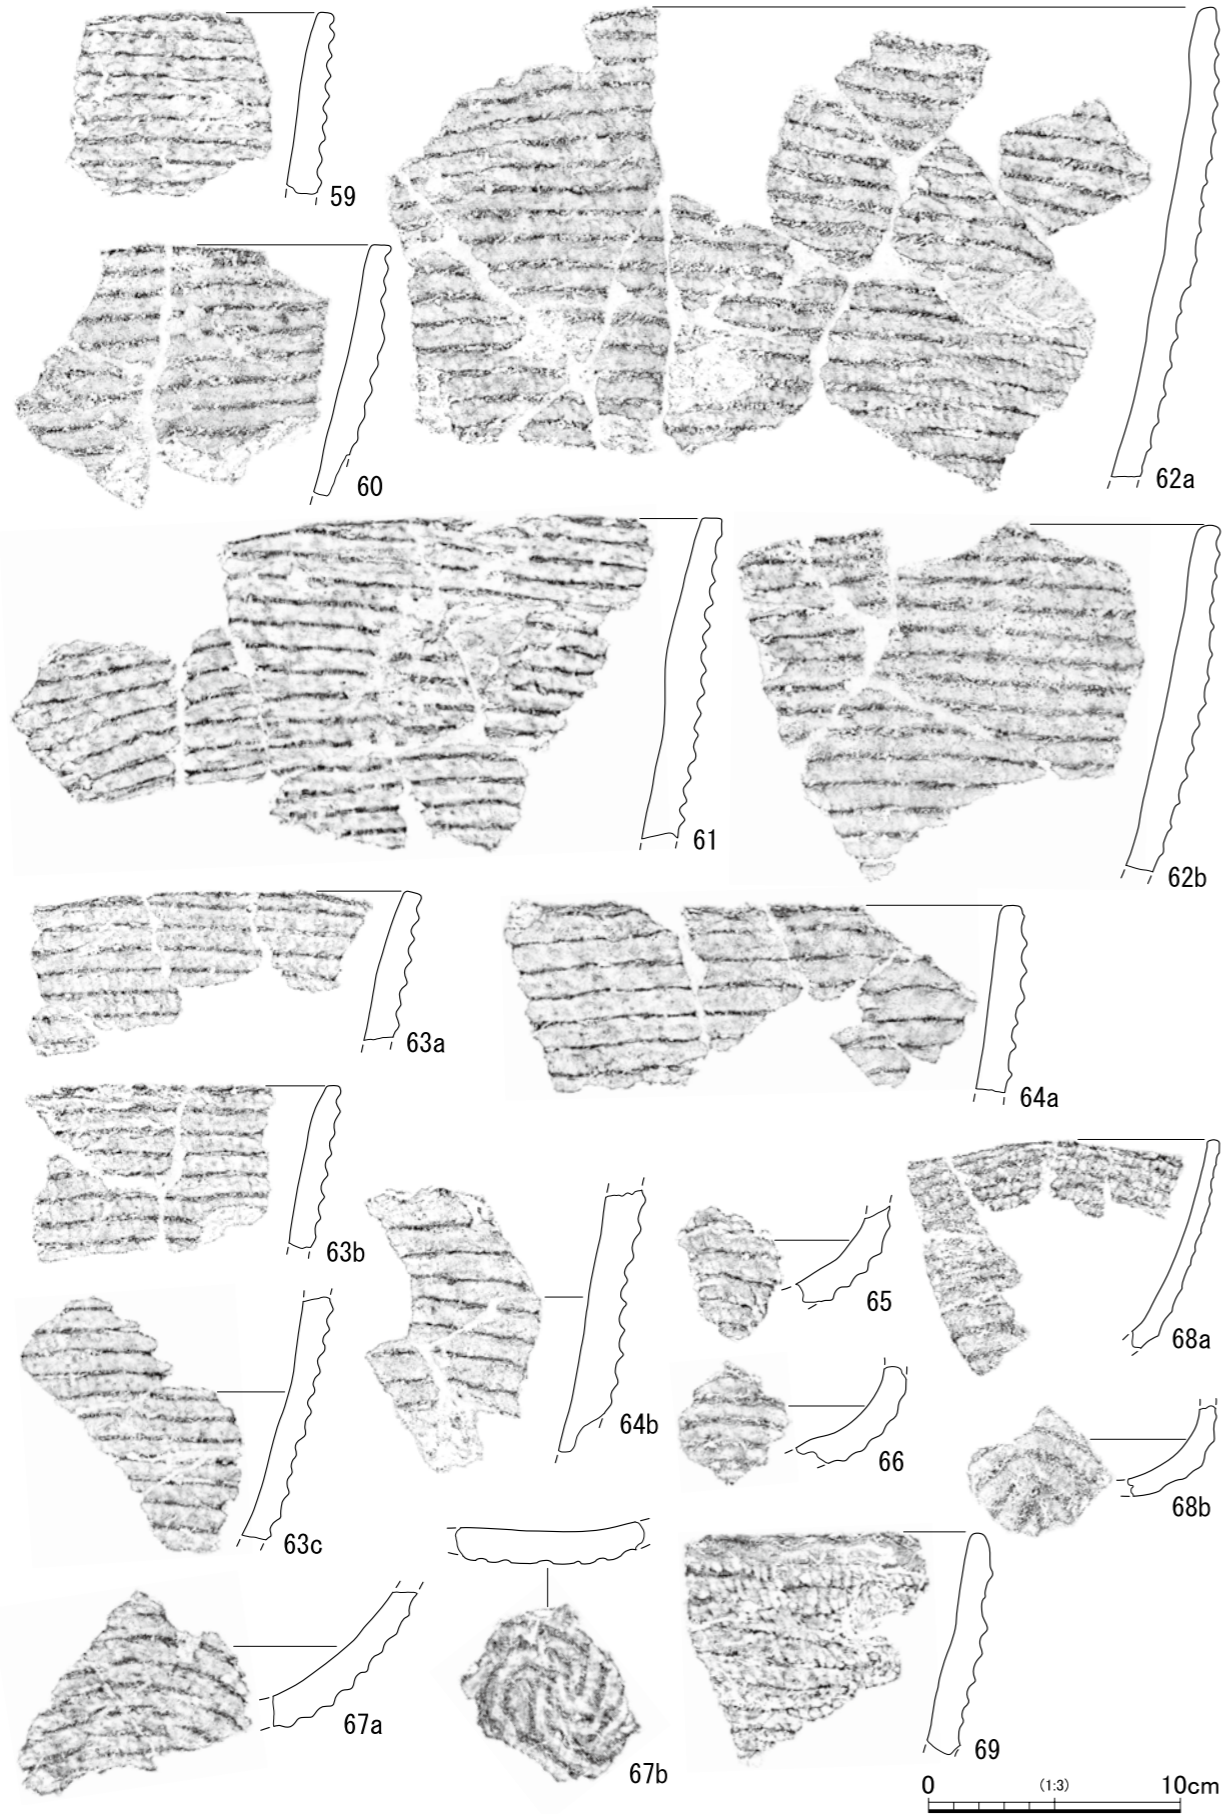 59
60
62a
61
62b
63a
64a
63b
65
68a
64b
66
68b
63c
67a
67b
69
0 (1:3) 10cm